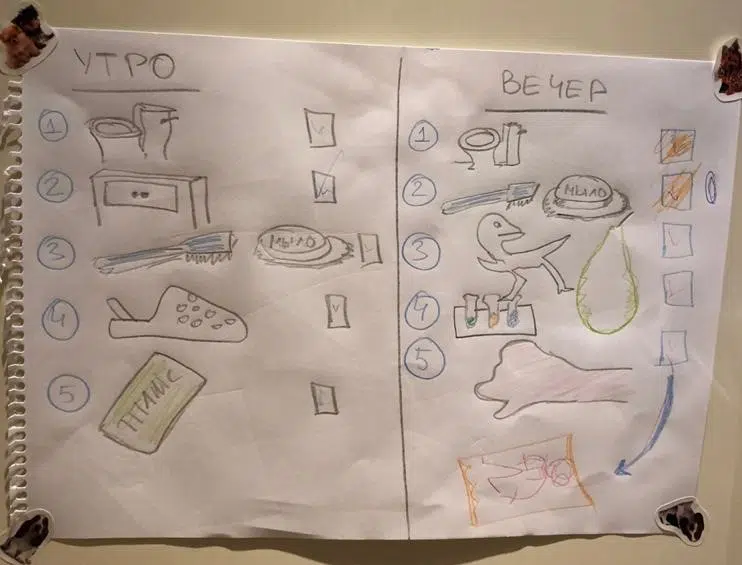 УТРО
1
2
3 МЫЛО
4
5
ВЕЧЕР
1
2 МЫЛО
3
4
5